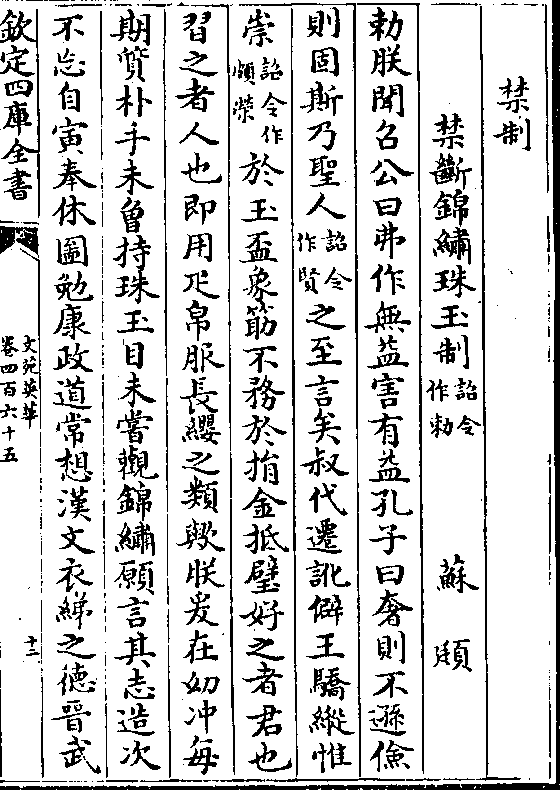 禁制
禁斷錦繡珠玉制詔令作勅 蘇頲
勅朕聞召公曰弗作無益害有益孔子曰奢則不遜儉
則固斯乃聖人詔令作賢之至言矣叔代遷訛僻王驕縱惟
崇詔令作頗榮於玉盃象筯不務於捐金抵璧好之者君也
習之者人也即用疋帛服長纓之類歟朕爰在幼冲每
期質朴手未曾持珠玉目未嘗觀錦繡願言其志造次
不忘自寅奉休圖勉康政道常想漢文衣綈之德晉武
欽定四庫全書
文苑英華
卷四百六十五
十二